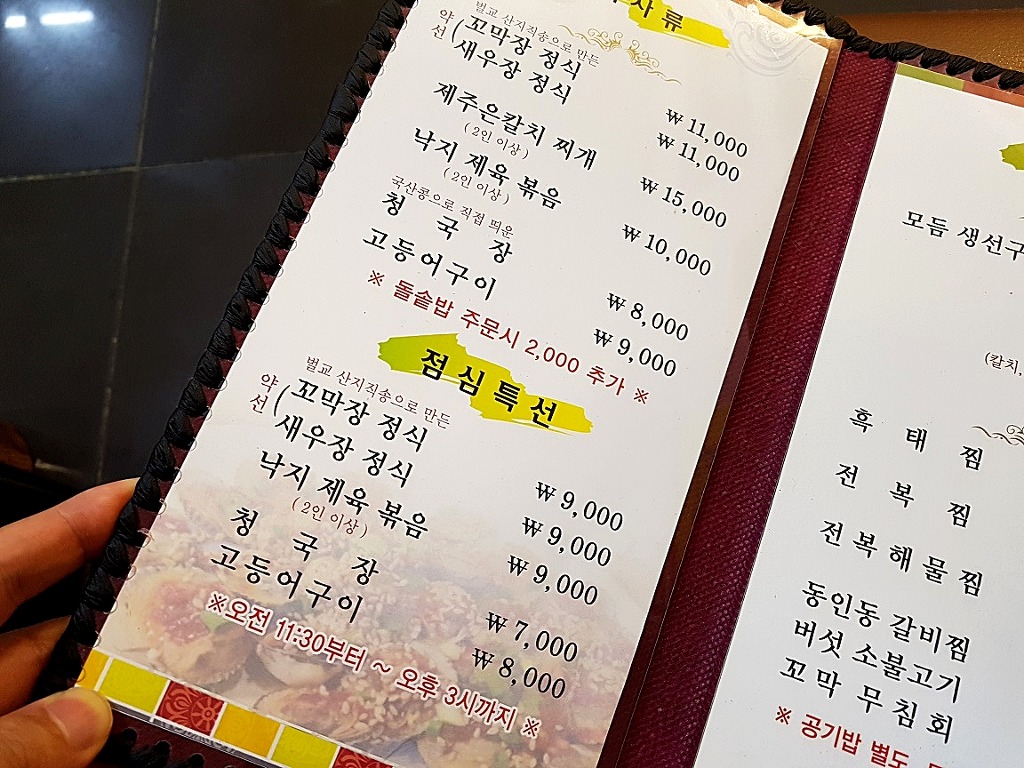 사류
벌교 산지직송으로 만든
약선 ( 꼬막장 정식 ₩ 11,000
새우장 정식 ₩ 11,000
제주은갈치 찌개 ₩ 15,000
( 2인 이상 )
낙지 제육 볶음 ₩ 10,000
( 2인 이상 )
국산콩으로 직접 띄운
청 국 장 ₩ 8,000
고등어구이 ₩ 9,000
※ 돌솥밥 주문시 2,000 추가 ※
점심특선
벌교 산지직송으로 만든
약선 ( 꼬막장 정식 ₩ 9,000
새우장 정식 ₩ 9,000
낙지 제육 볶음 ₩ 9,000
( 2인 이상 )
청 국 장 ₩ 7,000
고등어구이 ₩ 8,000
※오전 11:30부터 ~ 오후 3시까지 ※
모듬 생선구
(갈치,
흑 태 찜
전 복 찜
전복해물찜
동인동 갈비찜
버섯 소불고기
꼬막무침회
※ 공기밥 별도